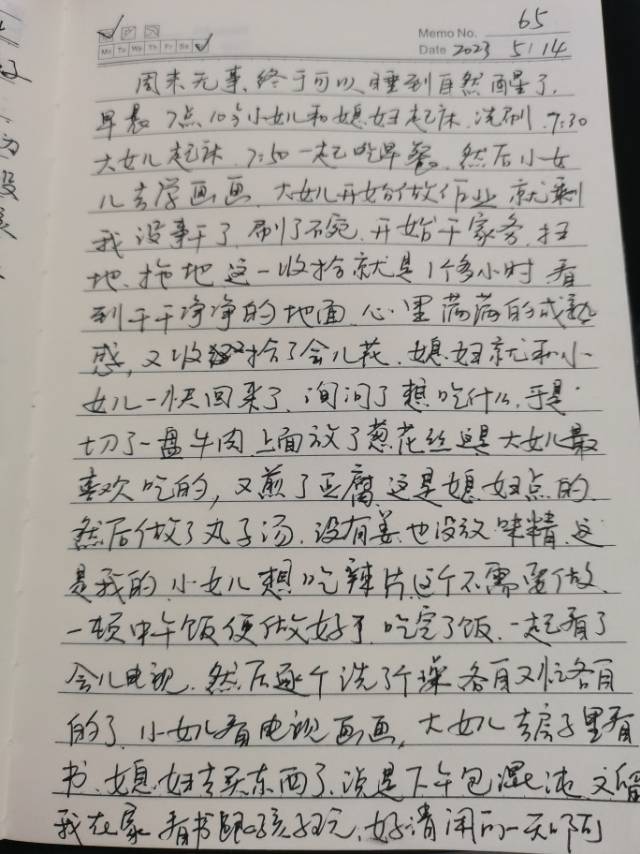 65
Memo No.
Mo Tu We Th Fr Sa
Date 2023 5/14
周末无事,终于可以睡到自然醒了,
早晨7点10分小女儿和媳妇起床,洗刷,7:30
大女儿起床,7:50一起吃早餐,然后小女
儿去学画画,大女儿开始做作业,就剩
我没事干了,刷了碗,开始干家务,扫
地、拖地,这一收拾就是1个多小时,看
到干干净净的地面,心里满满的成熟
感,又收拾了会儿花,媳妇就和小
女儿一快回来了,询问了想吃什么,于是
切了一盘牛肉上面放了葱花丝这是大女儿最
喜欢吃的,又煎了豆腐,这是媳妇点的
然后做了丸子汤,没有姜也没放味精,这
是我的,小女儿想吃辣片,这个不需要做,
一顿中午饭便做好了,吃完了饭,一起看了
会儿电视,然后逐个洗了个澡,各自又忙各自
的了,小女儿看电视画画,大女儿去房子里看
书,媳妇去买东西了,说是下午包混沌,又留
我在家看书跟孩子玩,好清闲的一天啊